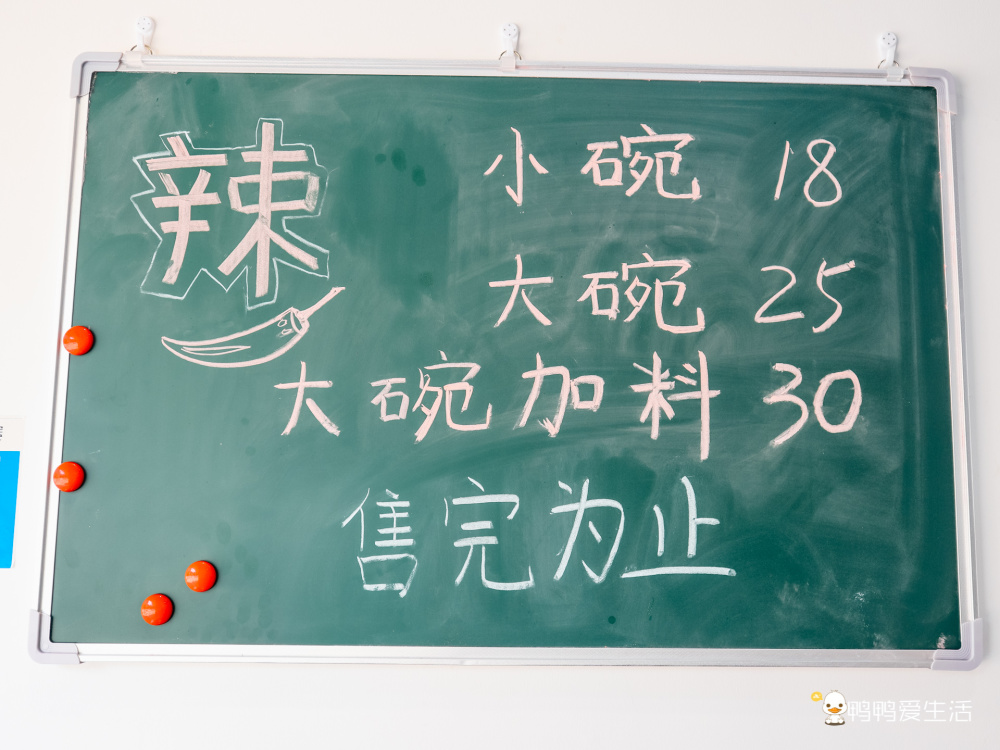 辣
小碗 18
大碗 25
大碗加料 30
售完为止
鸭鸭爱生活